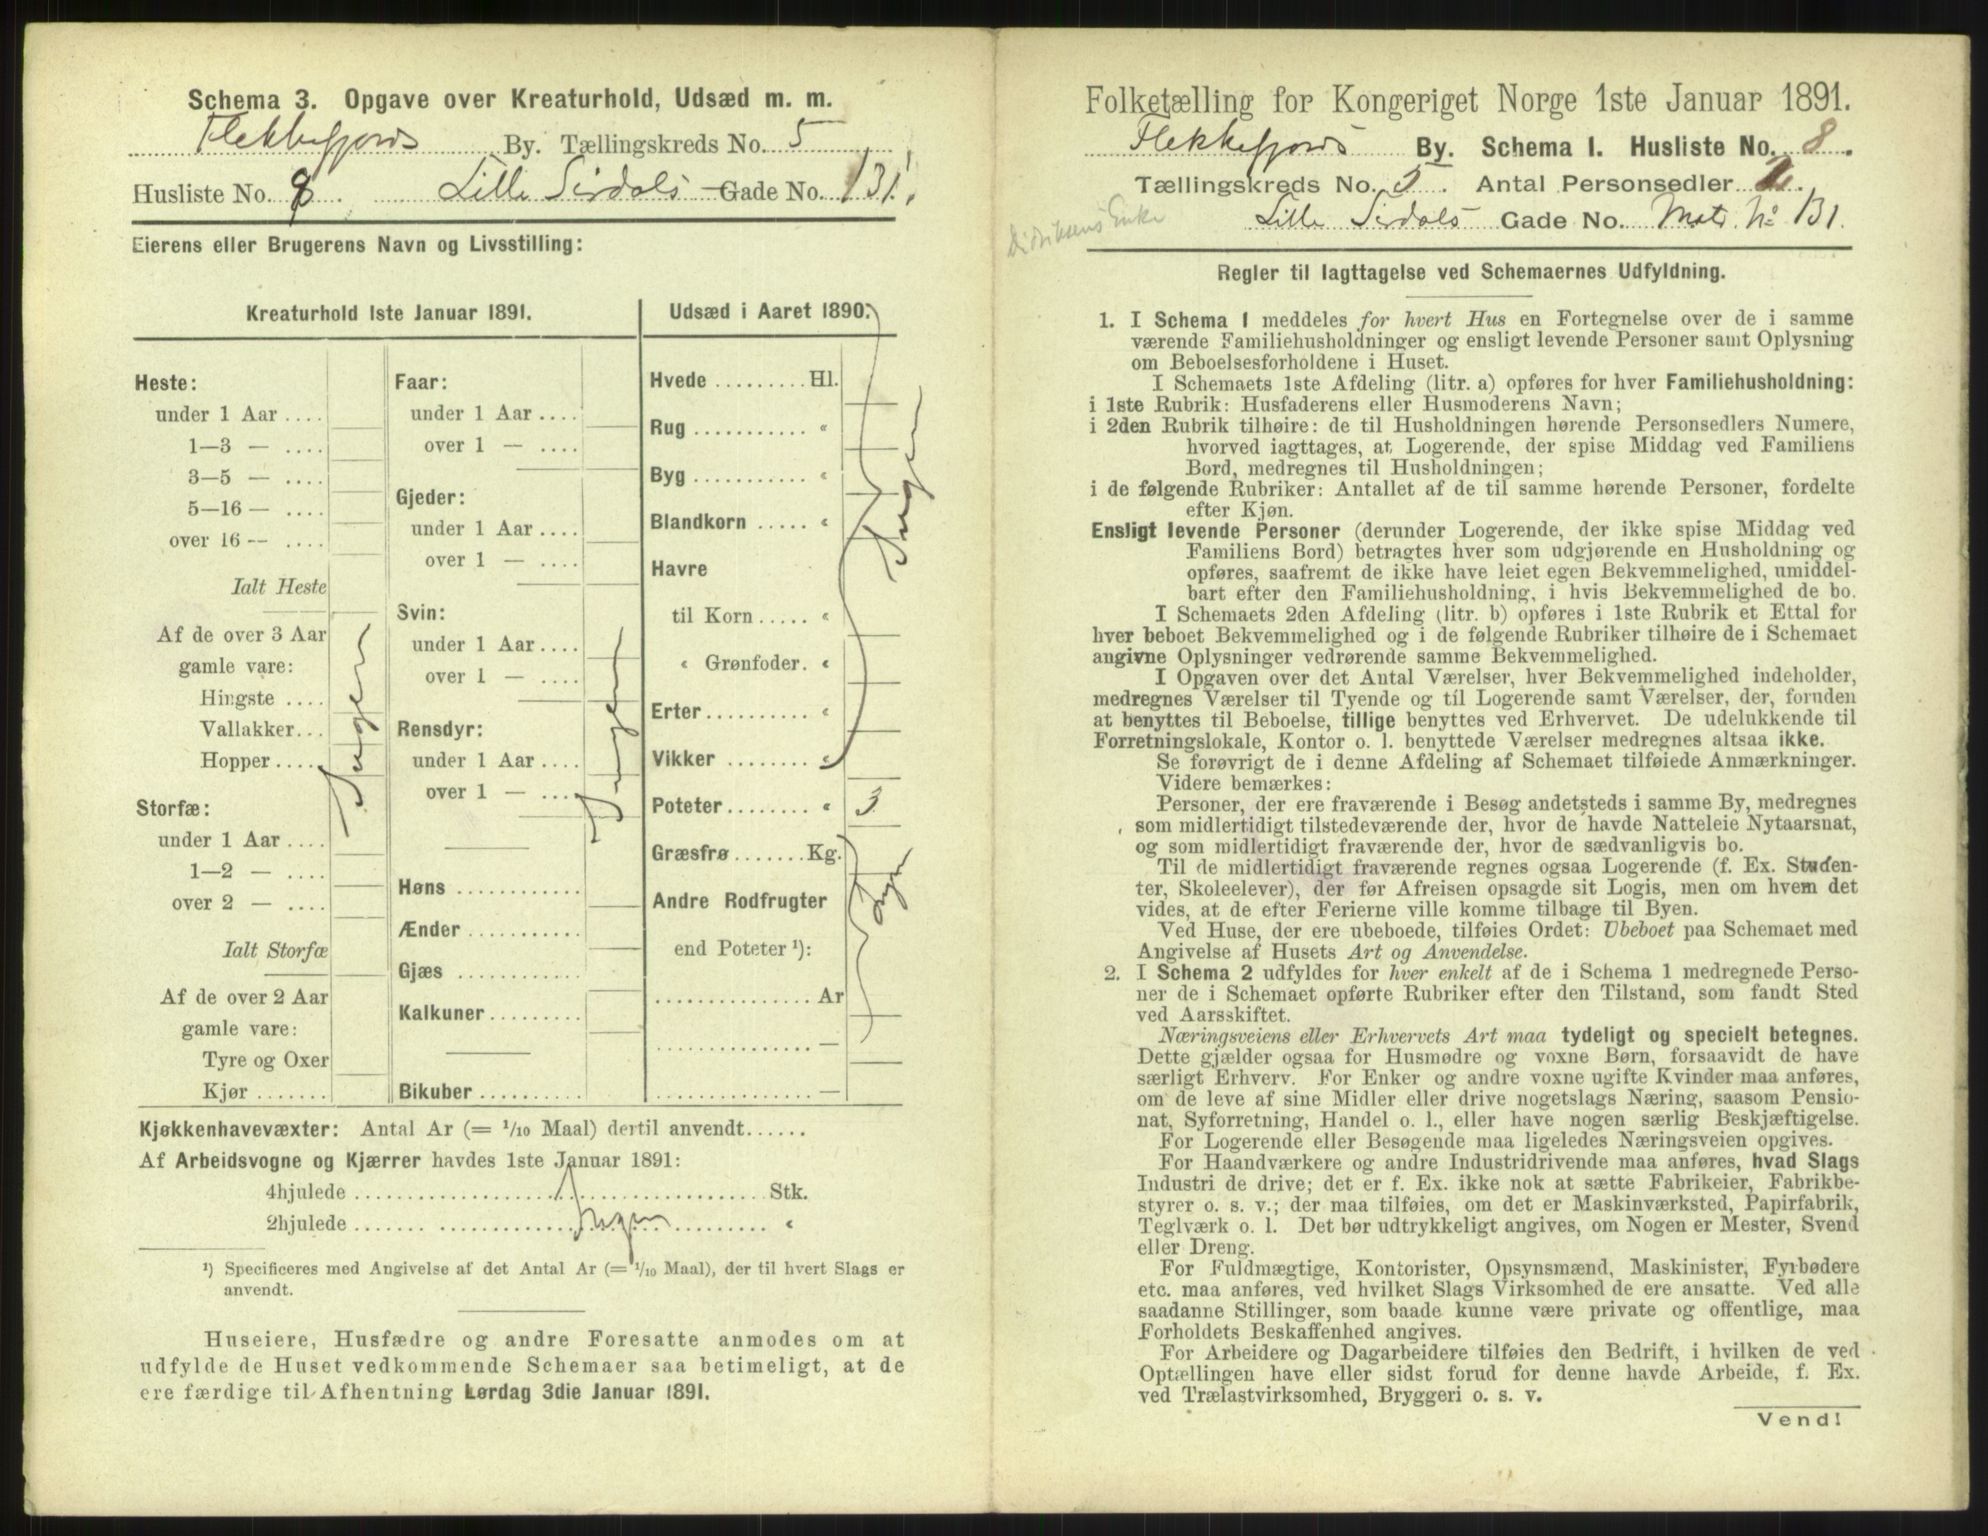 Schema 3. Opgave over Kreaturhold, Udsæd m. m.
Flekkefjords By. Tællingskreds No. 5
Husliste No. 8. Lille Sirdals Gade No. 131.
Eierens eller Brugerens Navn og Livsstilling:
Kreaturhold 1ste Januar 1891.
Heste:
under 1 Aar ....
1—3 — ....
3—5 — ....
5—16 — ....
over 16 — ....
Ialt Heste
Af de over 3 Aar
gamle vare:
Hingste ....
Vallakker...
Hopper .....
Ingen
Storfæ:
under 1 Aar ....
1—2 — ....
over 2 — ....
Ialt Storfæ
Af de over 2 Aar
gamle vare:
Tyre og Oxer
Kjør .......
Faar:
under 1 Aar ....
over 1 — ....
Gjeder:
under 1 Aar ....
over 1 — ....
Svin:
under 1 Aar ....
over 1 — ....
Rensdyr:
under 1 Aar ....
over 1 — ....
Ingen
Høns ...........
Ænder ...........
Gjæs ...........
Kalkuner.........
Bikuber ..........
Udsæd i Aaret 1890.
Hvede ......... Hl.
Rug ........... "
Byg ........... "
Blandkorn ..... "
Havre
til Korn ..... "
" Grønfoder. "
Erter.......... "
Vikker ........ "
Ingen
Poteter........ " 3
Græsfrø.......Kg.
Andre Rodfrugter
end Poteter ¹):
............... Ar
............... —
............... —
Ingen
Kjøkkenhavevæxter: Antal Ar (= 1/10 Maal) dertil anvendt......
Af Arbeidsvogne og Kjærrer havdes 1ste Januar 1891:
4hjulede ........................................ Stk.
2hjulede ........................................ "
Ingen
¹) Specificeres med Angivelse af det Antal Ar (= 1/10 Maal), der til hvert Slags er
anvendt.
Huseiere, Husfædre og andre Foresatte anmodes om at
udfylde de Huset vedkommende Schemaer saa betimeligt, at de
ere færdige til Afhentning Lørdag 3die Januar 1891.
Folketælling for Kongeriget Norge 1ste Januar 1891.
Flekkefjords By. Schema I. Husliste No. 8.
Tællingskreds No. 5. Antal Personsedler 2.
Didriksens Enke
Lille Sirdals Gade No. Matr. No 131.
Regler til Iagttagelse ved Schemaernes Udfyldning.
1. I Schema 1 meddeles for hvert Hus en Fortegnelse over de i samme
værende Familiehusholdninger og ensligt levende Personer samt Oplysning
om Beboelsesforholdene i Huset.
I Schemaets 1ste Afdeling (litr. a) opføres for hver Familiehusholdning:
i 1ste Rubrik: Husfaderens eller Husmoderens Navn;
i 2den Rubrik tilhøire: de til Husholdningen hørende Personsedlers Numere,
hvorved iagttages, at Logerende, der spise Middag ved Familiens
Bord, medregnes til Husholdningen;
i de følgende Rubriker: Antallet af de til samme hørende Personer, fordelte
efter Kjøn.
Ensligt levende Personer (derunder Logerende, der ikke spise Middag ved
Familiens Bord) betragtes hver som udgjørende en Husholdning og
opføres, saafremt de ikke have leiet egen Bekvemmelighed, umiddel-
bart efter den Familiehusholdning, i hvis Bekvemmelighed de bo.
I Schemaets 2den Afdeling (litr. b) opføres i 1ste Rubrik et Ettal for
hver beboet Bekvemmelighed og i de følgende Rubriker tilhøire de i Schemaet
angivne Oplysninger vedrørende samme Bekvemmelighed.
I Opgaven over det Antal Værelser, hver Bekvemmelighed indeholder,
medregnes Værelser til Tyende og til Logerende samt Værelser, der, foruden
at benyttes til Beboelse, tillige benyttes ved Erhvervet. De udelukkende til
Forretningslokale, Kontor o. l. benyttede Værelser medregnes altsaa ikke.
Se forøvrigt de i denne Afdeling af Schemaet tilføiede Anmærkninger.
Videre bemærkes:
Personer, der ere fraværende i Besøg andetsteds i samme By, medregnes
som midlertidigt tilstedeværende der, hvor de havde Natteleie Nytaarsnat,
og som midlertidigt fraværende der, hvor de sædvanligvis bo.
Til de midlertidigt fraværende regnes ogsaa Logerende (f. Ex. Studen-
ter, Skoleelever), der før Afreisen opsagde sit Logis, men om hvem det
vides, at de efter Ferierne ville komme tilbage til Byen.
Ved Huse, der ere ubeboede, tilføies Ordet: Ubeboet paa Schemaet med
Angivelse af Husets Art og Anvendelse.
2. I Schema 2 udfyldes for hver enkelt af de i Schema 1 medregnede Perso-
ner de i Schemaet opførte Rubriker efter den Tilstand, som fandt Sted
ved Aarsskiftet.
Næringsveiens eller Erhvervets Art maa tydeligt og specielt betegnes.
Dette gjælder ogsaa for Husmødre og voxne Børn, forsaavidt de have
særligt Erhverv. For Enker og andre voxne ugifte Kvinder maa anføres,
om de leve af sine Midler eller drive nogetslags Næring, saasom Pensio-
nat, Syforretning, Handel o. l., eller have nogen særlig Beskjæftigelse.
For Logerende eller Besøgende maa ligeledes Næringsveien opgives.
For Haandværkere og andre Industridrivende maa anføres, hvad Slags
Industri de drive; det er f. Ex. ikke nok at sætte Fabrikeier, Fabrikbe-
styrer o. s. v.; der maa tilføies, om det er Maskinværksted, Papirfabrik,
Teglværk o. l. Det bør udtrykkeligt angives, om Nogen er Mester, Svend
eller Dreng.
For Fuldmægtige, Kontorister, Opsynsmænd, Maskinister, Fyrbødere
etc. maa anføres, ved hvilket Slags Virksomhed de ere ansatte. Ved alle
saadanne Stillinger, som baade kunne være private og offentlige, maa
Forholdets Beskaffenhed angives.
For Arbeidere og Dagarbeidere tilføies den Bedrift, i hvilken de ved
Optællingen have eller sidst forud for denne havde Arbeide, f. Ex.
ved Trælastvirksomhed, Bryggeri o. s. v.
Vend!